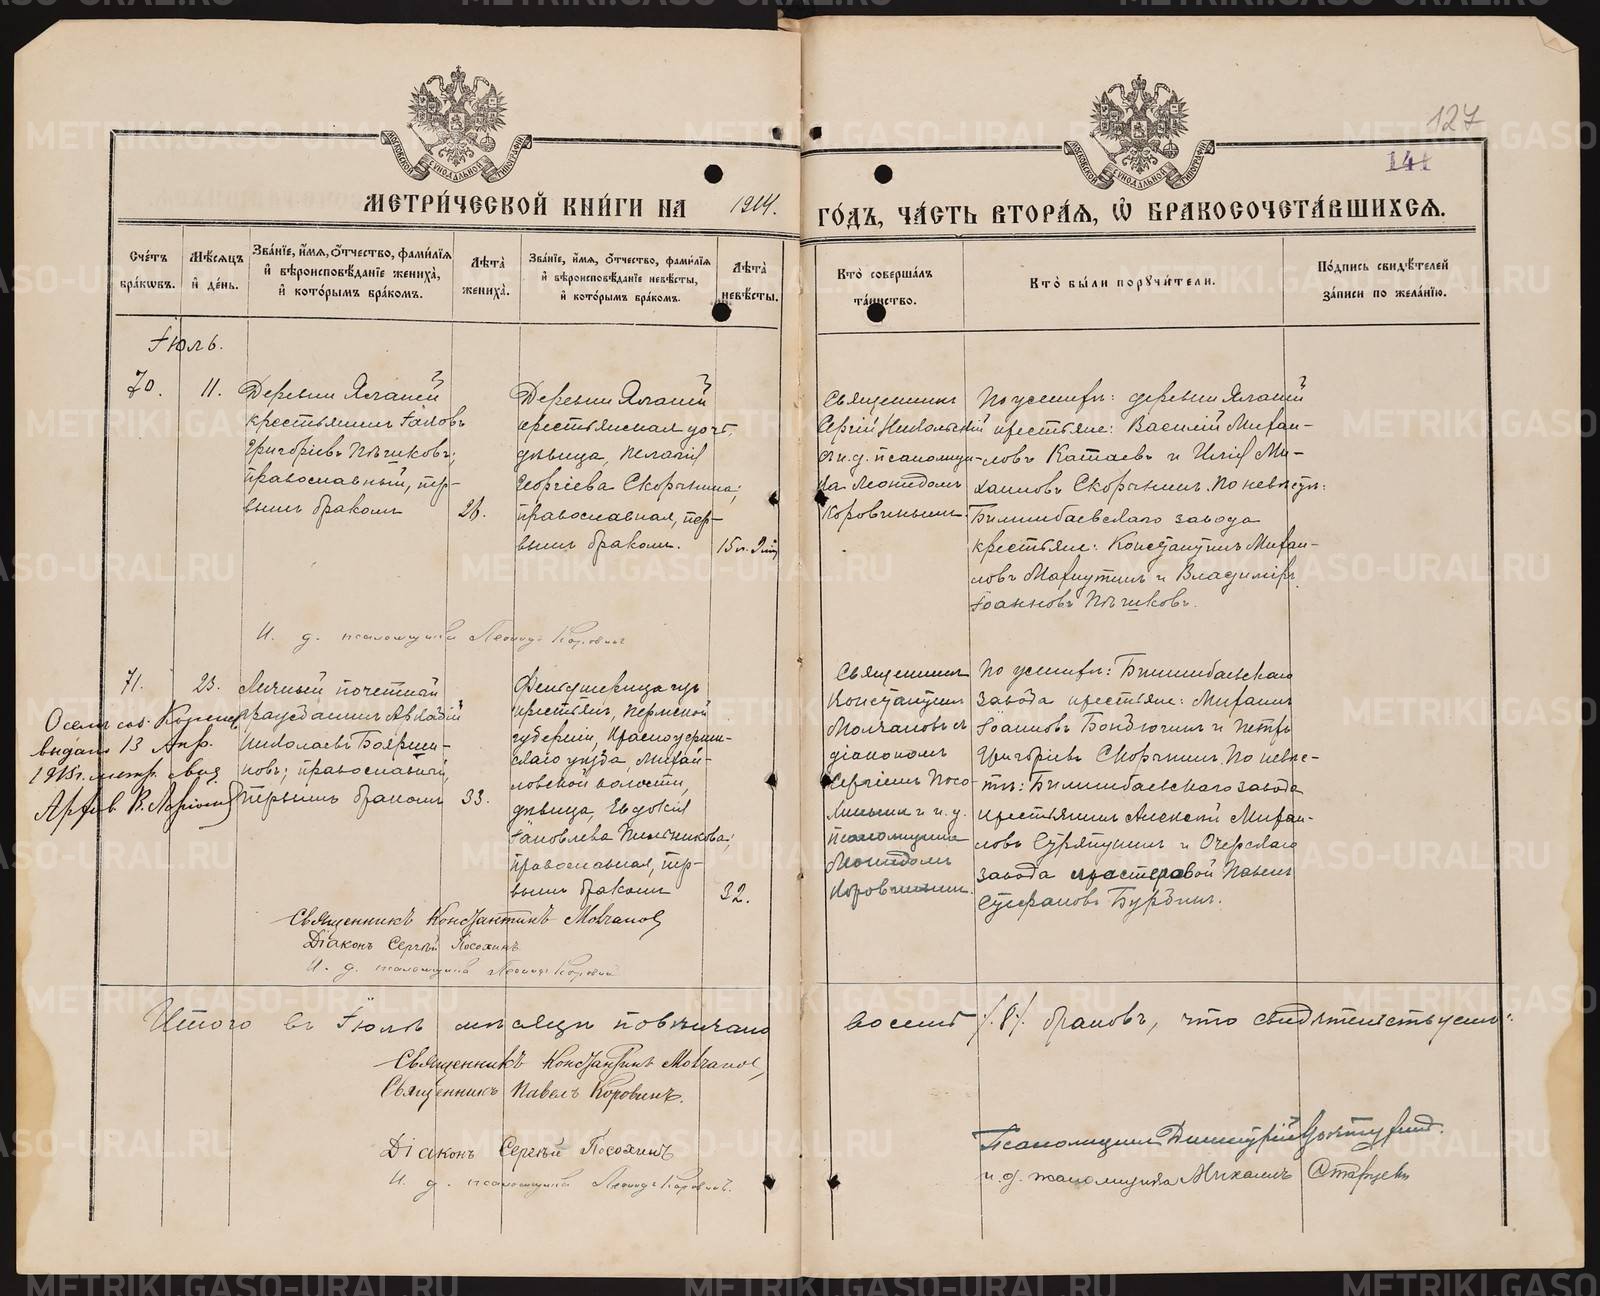 127
141
МЕТРИ́ЧЕСКОЙ КНИ́ГИ НА 1914. ГО́ДЪ, ЧА́СТЬ ВТОРА́Я, Ѡ҆ БРАКОСОЧЕТА́ВШИХСЯ.
Сче́тъ бра́кѡвъ.
Мѣ́сяцъ и҆ де́нь.
Зва́нїе, и҆́мя, ѻ҆́тчество, фами́лїя и҆ вѣроисповѣ́данїе жениха̀, и҆ кото́рымъ бра́комъ.
Лѣ́та жениха̀.
Зва́нїе, и҆́мя, ѻ҆́тчество, фами́лїя и҆ вѣроисповѣ́данїе невѣ́сты, и҆ кото́рымъ бра́комъ.
Лѣ́та невѣ́сты.
Кто̀ соверша́лъ та́инство.
Кто̀ бы́ли поручи́тели.
По́дпись свидѣ́телей за́писи по жела́нїю.
Іюль.
70.
11.
Деревни
крестьянинъ Іаковъ
Григоріевъ Пѣшковъ;
православный, пер-
вымъ бракомъ
26.
Деревни
крестьянская дочь,
дѣвица, Пелагія
Георгіева Скорынина;
православная, пер-
вымъ бракомъ.
Священникъ
Сергій Никольскій
съ и. д. псаломщи-
ка Леонидомъ
Коровинымъ.
По женихѣ: деревни
крестьяне: Василій Михаи-
ловъ Катаевъ и Илія Ми-
хаиловъ Скорынинъ. По невѣстѣ:
Билимбаевскаго завода
крестьяне: Константинъ Михаи-
ловъ и Владиміръ
Іоанновъ Пѣшковъ.
И. д. псаломщика Леонидъ Коровинъ
71.
23.
Личный почетный
гражданинъ Аркадій
Николаевъ Боярши-
новъ; православный,
первымъ бракомъ
33.
выдано 13 Апр.
1915 г. метр. свид.
изъ
крестьянъ, Пермской
губерніи, Красноуфим-
скаго уѣзда, Михай-
ловской волости,
дѣвица, Евдокія
Іаковлева
православная, пер-
вымъ бракомъ
32.
Священникъ
Константинъ
Молчановъ съ
діакономъ
Сергіемъ Посо-
хинымъ и и. д.
псаломщика
Леонидомъ
Коровинымъ.
По женихѣ: Билимбаевскаго
завода крестьяне: Михаилъ
Іоанновъ и Петръ
Григорьевъ Скорынинъ. По невѣс-
тѣ: Билимбаевскаго завода
крестьянинъ Алексій Михаи-
ловъ и Очерскаго
завода мастеровой Павелъ
Стефановъ
Священникъ Константинъ Молчановъ
Діаконъ Сергѣй Посохинъ
И. д. псаломщика Леонидъ Коровинъ
Итого въ Іюлѣ мѣсяцѣ повѣнчано восемь /8/ браковъ, что свидѣтельствуемъ:
Священникъ Константинъ Молчановъ,
Священникъ Павелъ Коровинъ.
Діаконъ Сергѣй Посохинъ
И. д. псаломщика Леонидъ Коровинъ.
Псаломщикъ Димитрій
и. д. псаломщика Михаилъ Старцевъ